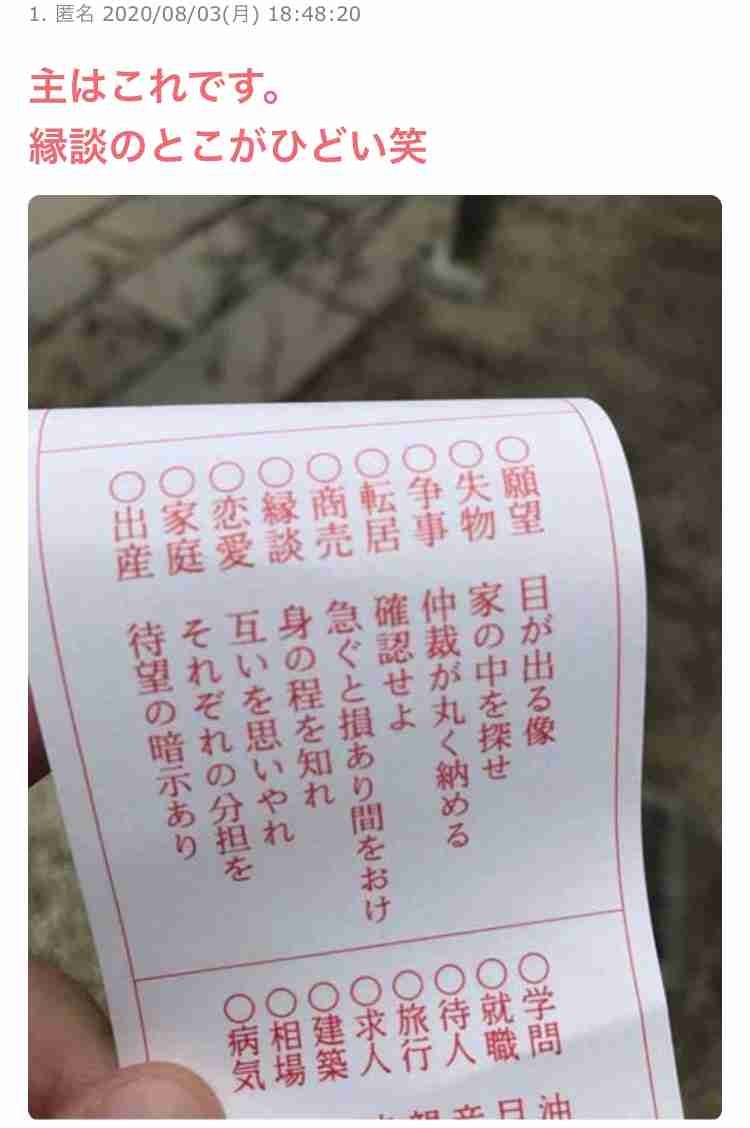 1. 匿名 2020/08/03(月) 18:48:20
主はこれです。
縁談のとこがひどい笑
○願望 目が出る像
○失物 家の中を探せ
○争事 仲裁が丸く納める
○転居 確認せよ
○商売 急ぐと損あり間をおけ
○縁談 身の程を知れ
○恋愛 互いを思いやれ
○家庭 それぞれの分担を
○出産 待望の暗示あり
○学問
○就職
○待人
○旅行
○求人
○建築
○相場
○病気